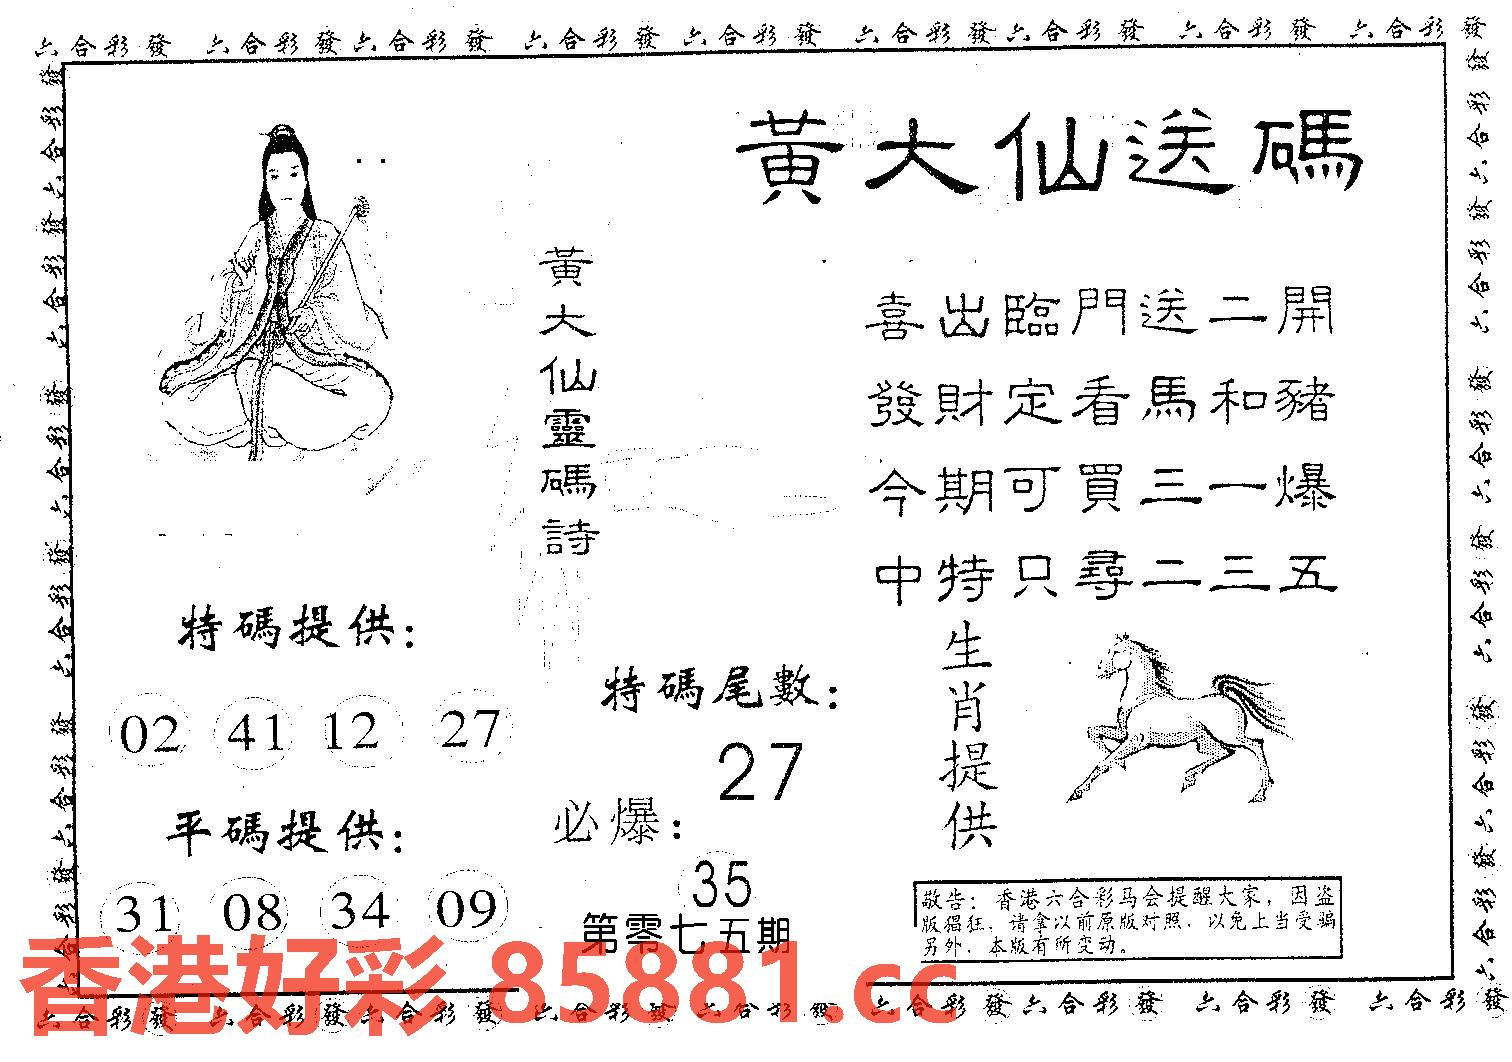 六合彩發 六合彩發六合彩發 六合彩發 六合彩發 六合彩發六合彩發 六合彩發 六合彩發
黃大仙送碼
黃大仙靈碼詩
喜出臨門送二開
發財定看馬和豬
今期可買三一爆
中特只尋二三五
特碼提供:
02 41 12 27
平碼提供:
31 08 34 09
特碼尾數:
27
必爆:
35
第零七五期
生肖提供
敬告: 香港六合彩马会提醒大家, 因盗
版猖狂, 请拿以前原版对照, 以免上当受骗
另外, 本版有所变动。
香港好彩 85881.cc
六合彩發 六合彩發六合彩發 六合彩發 六合彩發 六合彩發六合彩發 六合彩發 六合彩發